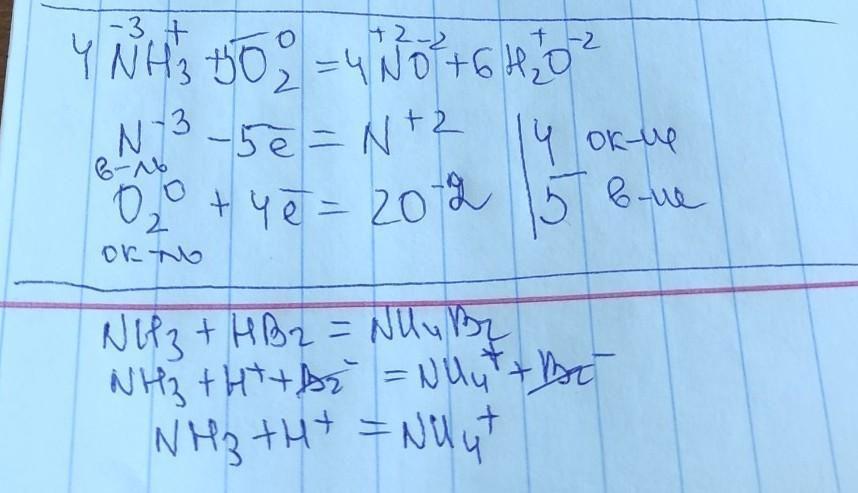 4 N⁻³H₃⁺ + 5O₂⁰ = 4 N⁺²O⁻² + 6 H₂⁺O⁻²
N⁻³ - 5e̅ = N⁺² | 4 ок-ие
в-ль
O₂⁰ + 4e̅ = 2O⁻² | 5 в-ие
ок-ль
NH₃ + HBr = NH₄Br
NH₃ + H⁺ + Br⁻ = NH₄⁺ + Br⁻
NH₃ + H⁺ = NH₄⁺